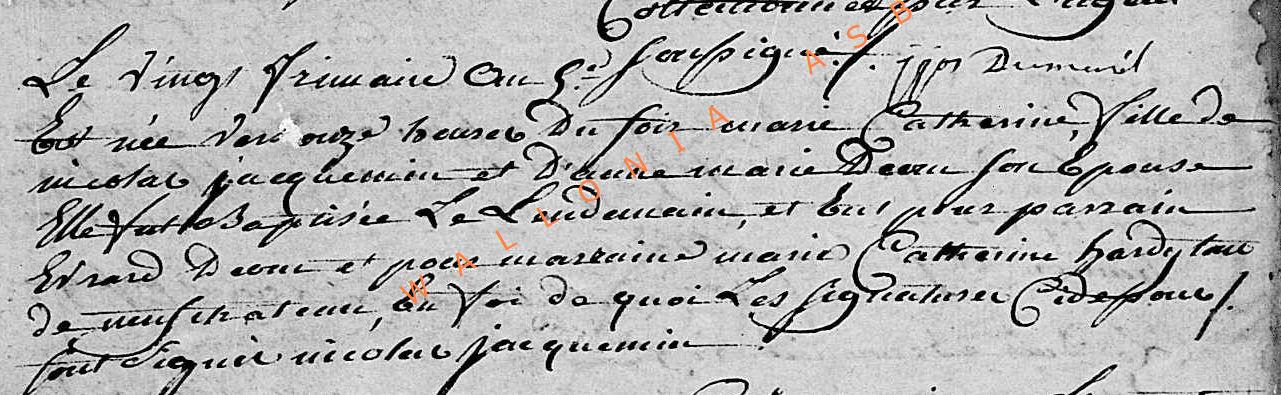 pour
Le Vingt frimaire an 5.e Soussigné ./. Dumenil
Est née vers onze heures Du soir marie Catherine, fille de
nicolas jacquemin et D'anne marie Decou son Epouse
Elle fut Baptisée Le Lendemain, et Eut pour parrain
Evrard Decou et pour marraine marie Catherine hardy tous
de neufchateau, En foi de quoi Les signatures Cidessous ./.
sont signés nicolas jacquemin .
WALLONIA ASB